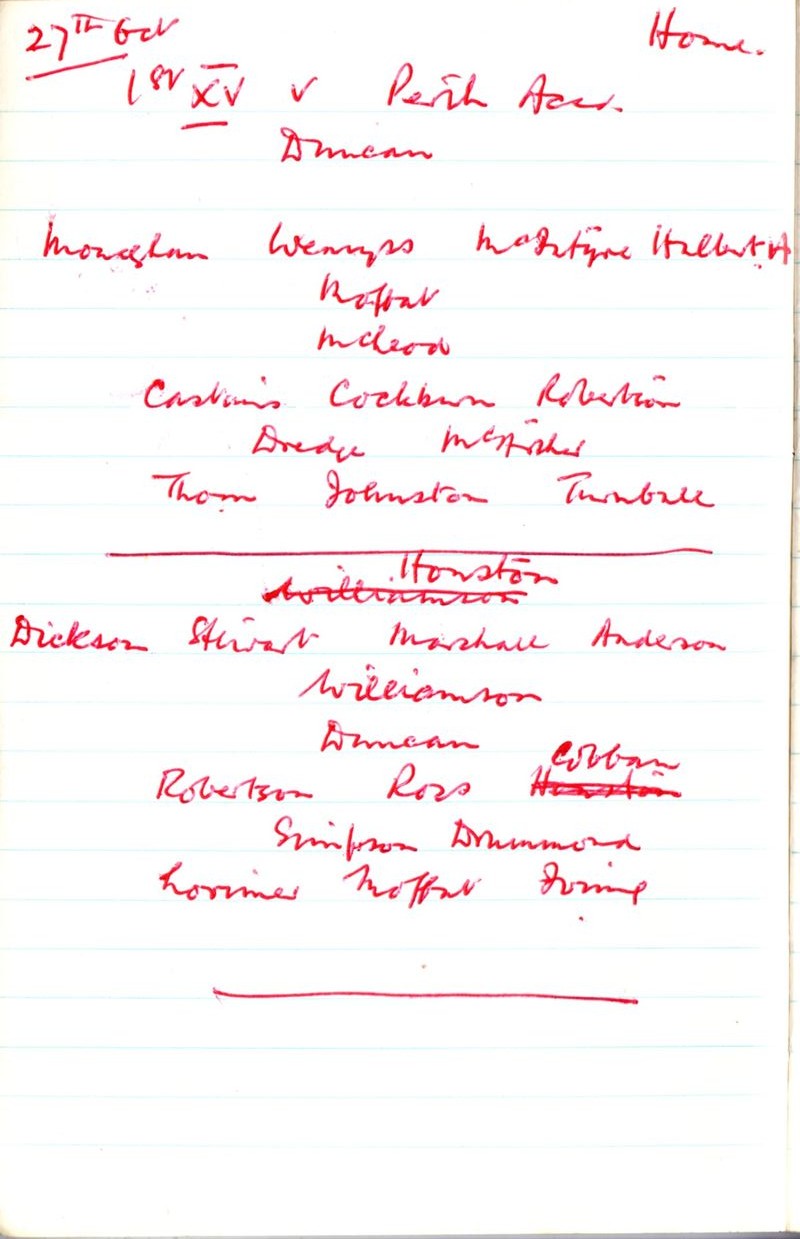 27TH Oct Home.
1st XV v Perth Acad.
Duncan
Monaghan Wemyss McIntyre Hulbert A
Moffat
McLeod
Castairs Cockburn Robertson
Dredge
Thom Johnston Turnbull
Houston
Williamson
Dickson Stewart Marshall Anderson
Williamson
Duncan
Cobban
Robertson Ross Houston
Simpson Drummond
Lorimer Moffat Irving